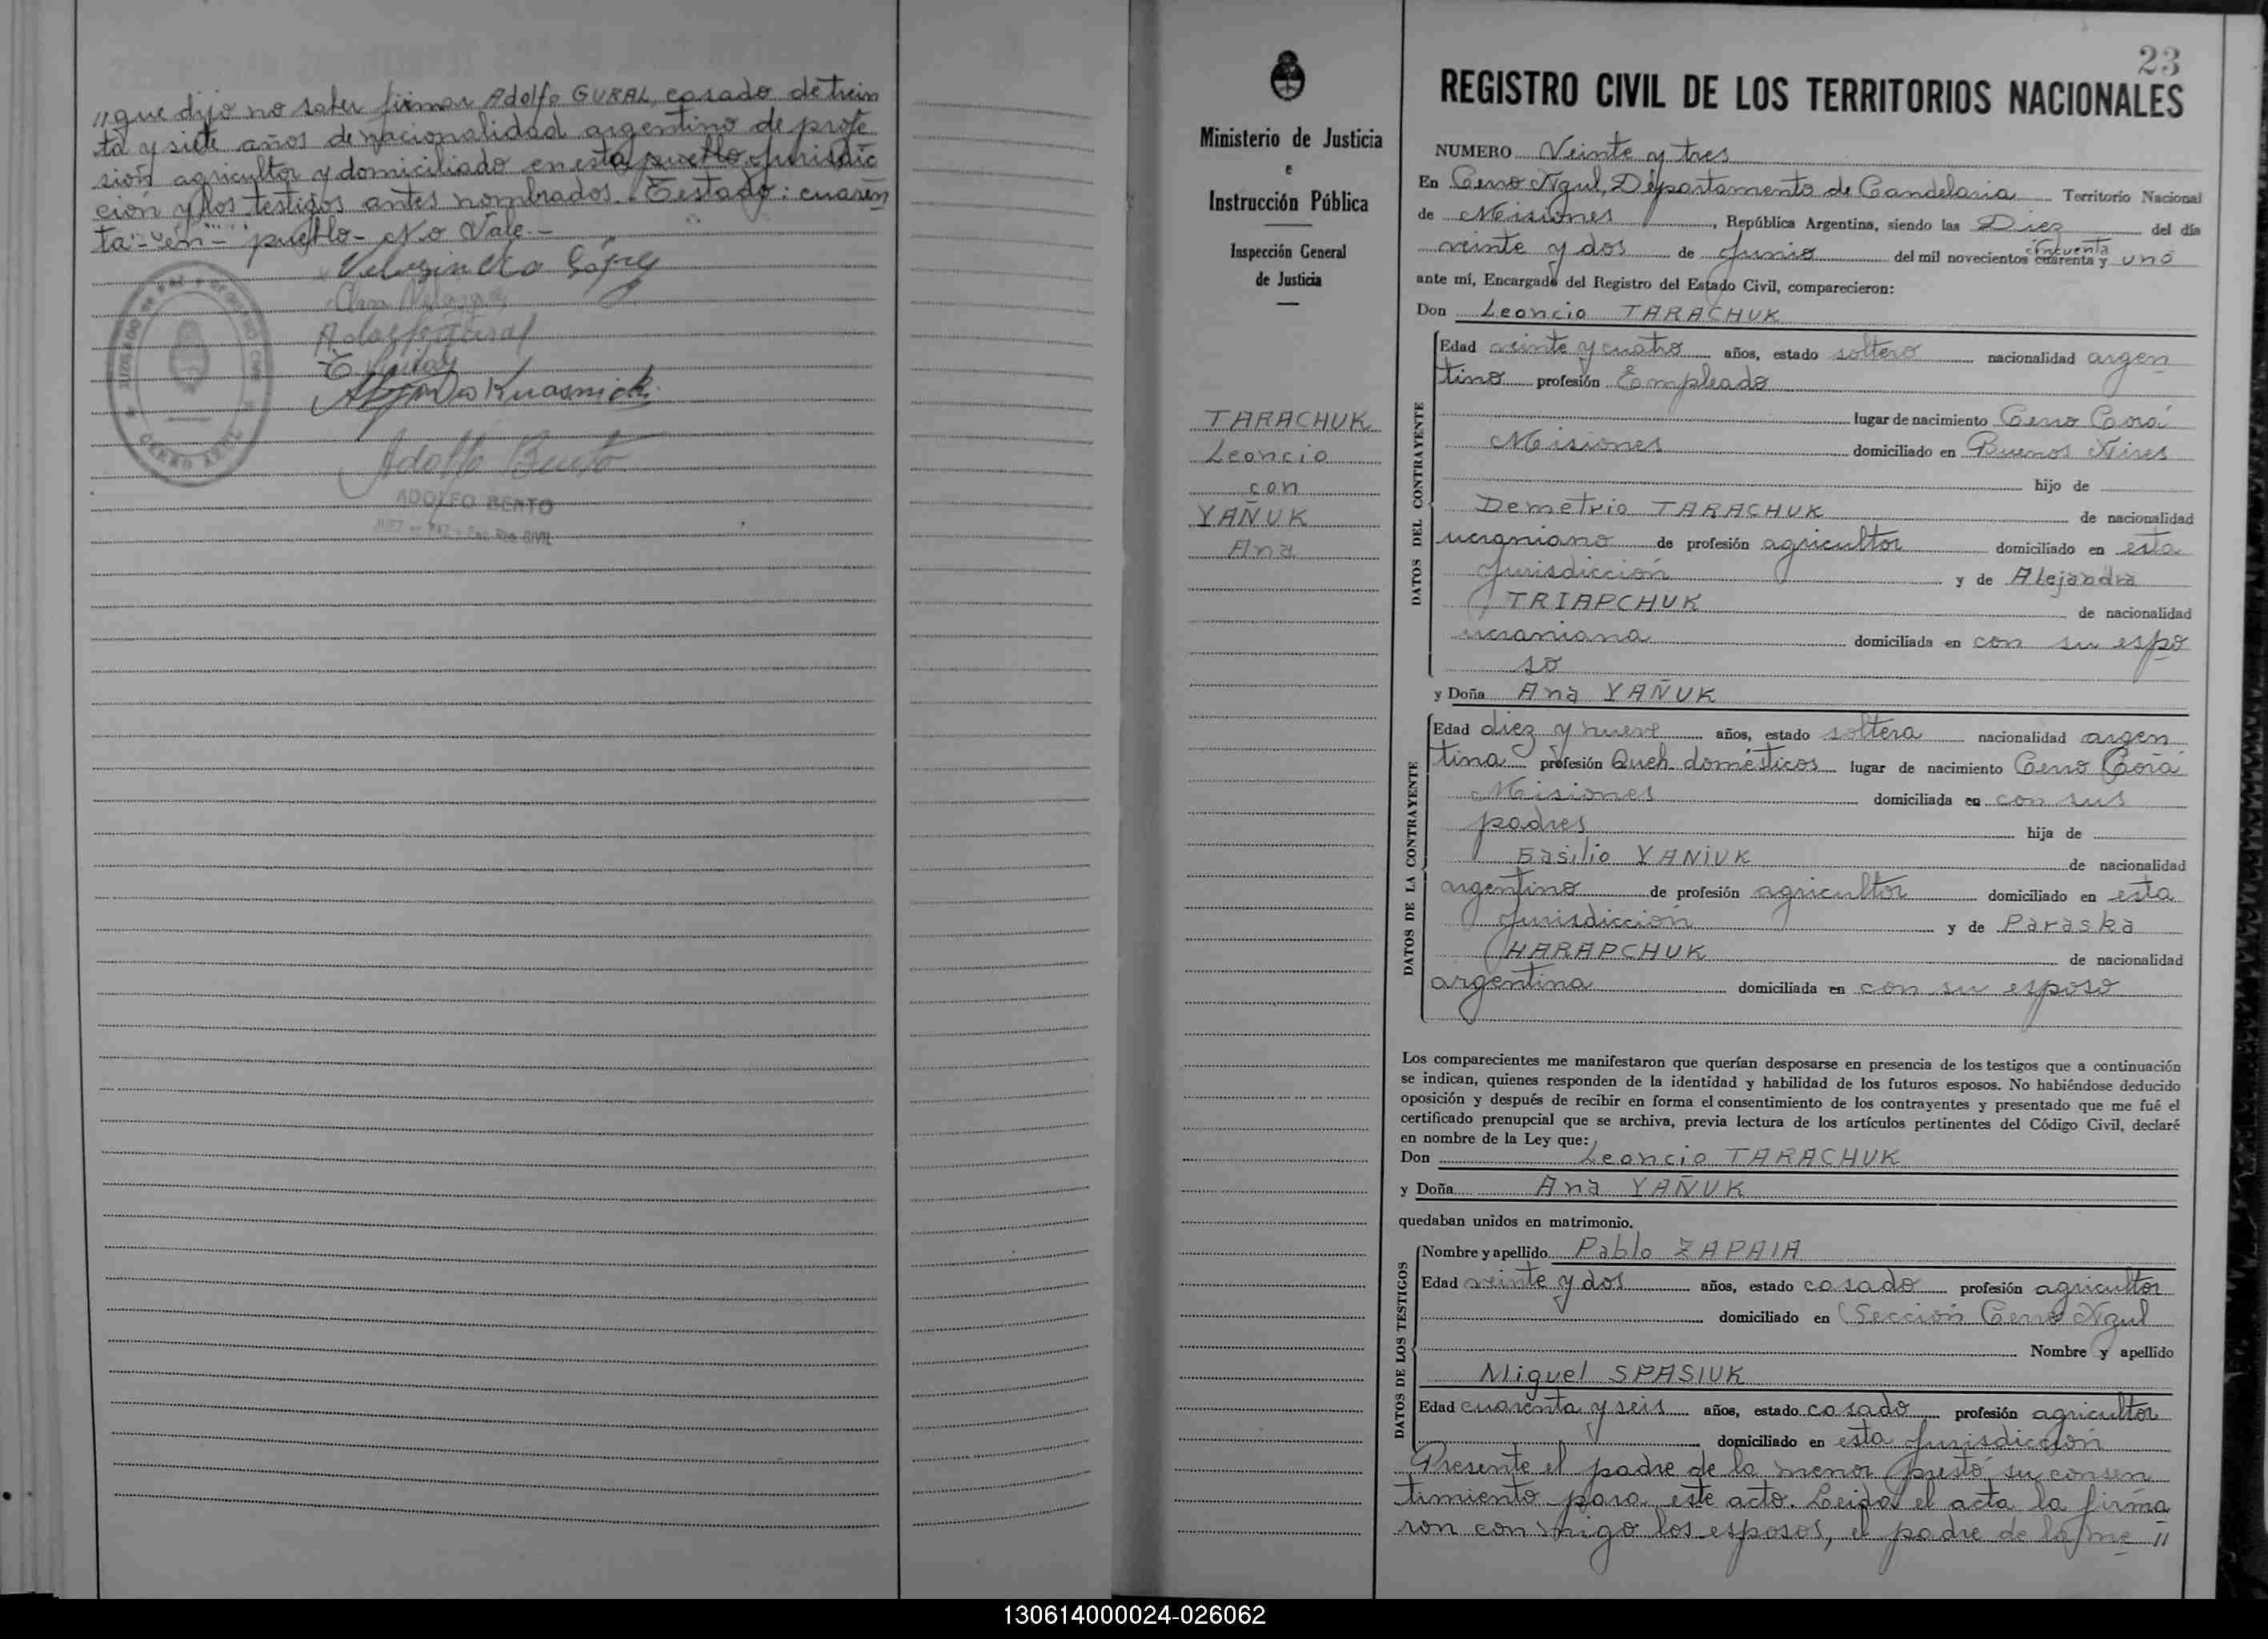 "que dijo no saber firmar Adolfo GURAL, casado de trein
ta y siete años de nacionalidad argentino de profe
sión agricultor y domiciliado en esta pueblo Jurisdic
ción y los testigos antes nombrados. Testado: cuaren
ta - en - pueblo - No Vale.-
Adolfo Gural
Adolfo Bento
ADOLFO BENTO
CERRO AZUL
23
REGISTRO CIVIL DE LOS TERRITORIOS NACIONALES
Ministerio de Justicia
e
Instrucción Pública
Inspección General
de Justicia
TARACHUK
Leoncio
con
YAÑUK
Ana
NUMERO Veinte y tres
En Cerro Azul, Departamento de Candelaria Territorio Nacional
de Misiones, República Argentina, siendo las Diez del día
veinte y dos de Junio del mil novecientos cuarenta y cincuenta uno
ante mí, Encargado del Registro del Estado Civil, comparecieron:
Don Leoncio TARACHUK
DATOS DEL CONTRAYENTE
Edad veinte y cuatro años, estado soltero nacionalidad argen
tino profesión Empleado
lugar de nacimiento Cerro Corá
Misiones domiciliado en Buenos Aires
hijo de
Demetrio TARACHUK de nacionalidad
ucraniano de profesión agricultor domiciliado en esta
Jurisdicción y de Alejandra
TRIAPCHUK de nacionalidad
ucraniana domiciliada en con su espo
so
y Doña Ana YAÑUK
DATOS DE LA CONTRAYENTE
Edad diez y nueve años, estado soltera nacionalidad argen
tina profesión Queh. domésticos lugar de nacimiento Cerro Corá
Misiones domiciliada en con sus
padres hija de
Basilio YANIUK de nacionalidad
argentino de profesión agricultor domiciliado en esta
Jurisdicción y de Paraska
HARAPCHUK de nacionalidad
argentina domiciliada en con su esposo
Los comparecientes me manifestaron que querían desposarse en presencia de los testigos que a continuación
se indican, quienes responden de la identidad y habilidad de los futuros esposos. No habiéndose deducido
oposición y después de recibir en forma el consentimiento de los contrayentes y presentado que me fué el
certificado prenupcial que se archiva, previa lectura de los artículos pertinentes del Código Civil, declaré
en nombre de la Ley que:
Don Leoncio TARACHUK
y Doña Ana YAÑUK
quedaban unidos en matrimonio.
DATOS DE LOS TESTIGOS
Nombre y apellido Pablo ZAPAIA
Edad veinte y dos años, estado casado profesión agricultor
domiciliado en Sección Cerro Azul
Nombre y apellido
Miguel SPASIUK
Edad cuarenta y seis años, estado casado profesión agricultor
domiciliado en esta Jurisdicción
Presente el padre de la menor prestó su consen
timiento para este acto. Leida el acta la firma
ron con migo los esposos, el padre de la me "
130614000024-026062